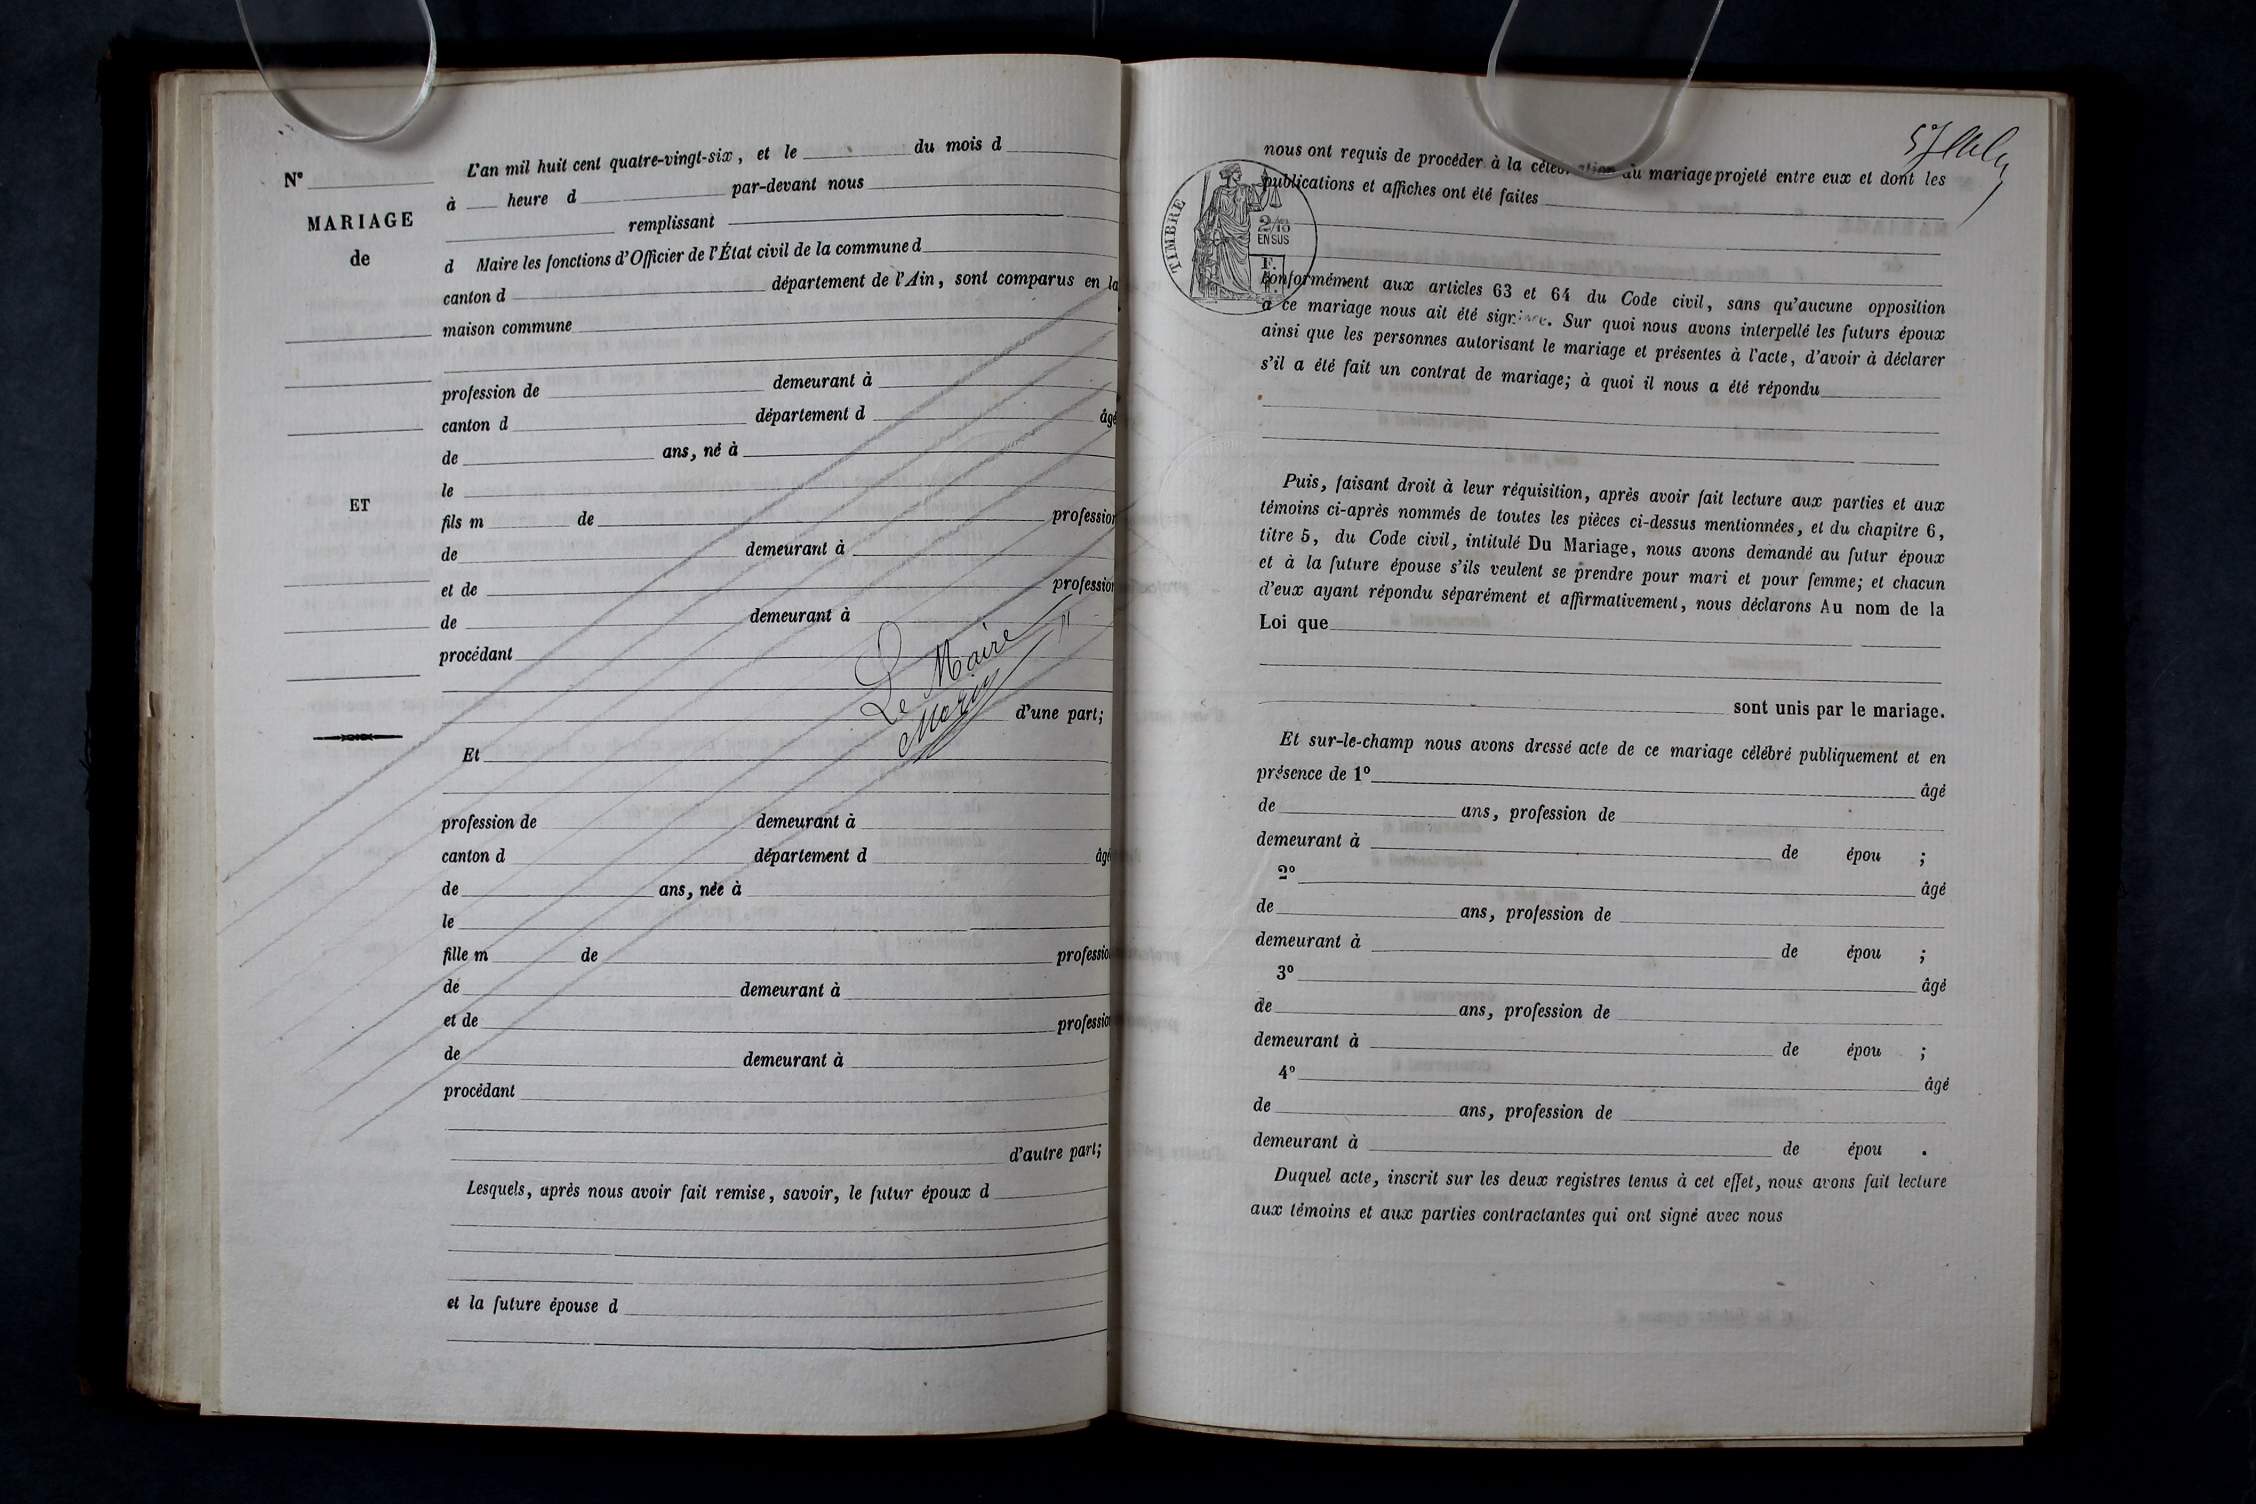 N°
MARIAGE
de
ET
L'an mil huit cent quatre-vingt-six, et le du mois d
à heure d par-devant nous
remplissant
d Maire les fonctions d'Officier de l'État civil de la commune d
canton d département de l'Ain, sont comparus en la
maison commune
profession de demeurant à
canton d département d âgé
de ans, né à
le
fils m de profession
de demeurant à
et de profession
de demeurant à
procédant
Le Maire
d'une part;
Et
profession de demeurant à
canton d département d âgé
de ans, née à
le
fille m de profession
de demeurant à
et de profession
de demeurant à
procédant
d'autre part;
Lesquels, après nous avoir fait remise, savoir, le futur époux d
et la future épouse d
nous ont requis de procéder à la célébration du mariage projeté entre eux et dont les
publications et affiches ont été faites
TIMBRE
2/10
EN SUS
conformément aux articles 63 et 64 du Code civil, sans qu'aucune opposition
à ce mariage nous ait été signifiée. Sur quoi nous avons interpellé les futurs époux
ainsi que les personnes autorisant le mariage et présentes à l'acte, d'avoir à déclarer
s'il a été fait un contrat de mariage; à quoi il nous a été répondu
Puis, faisant droit à leur réquisition, après avoir fait lecture aux parties et aux
témoins ci-après nommés de toutes les pièces ci-dessus mentionnées, et du chapitre 6,
titre 5, du Code civil, intitulé Du Mariage, nous avons demandé au futur époux
et à la future épouse s'ils veulent se prendre pour mari et pour femme; et chacun
d'eux ayant répondu séparément et affirmativement, nous déclarons Au nom de la
Loi que
sont unis par le mariage.
Et sur-le-champ nous avons dressé acte de ce mariage célébré publiquement et en
présence de 1° âgé
de ans, profession de
demeurant à de épou ;
2° âgé
de ans, profession de
demeurant à de épou ;
3° âgé
de ans, profession de
demeurant à de épou ;
4° âgé
de ans, profession de
demeurant à de épou .
Duquel acte, inscrit sur les deux registres tenus à cet effet, nous avons fait lecture
aux témoins et aux parties contractantes qui ont signé avec nous